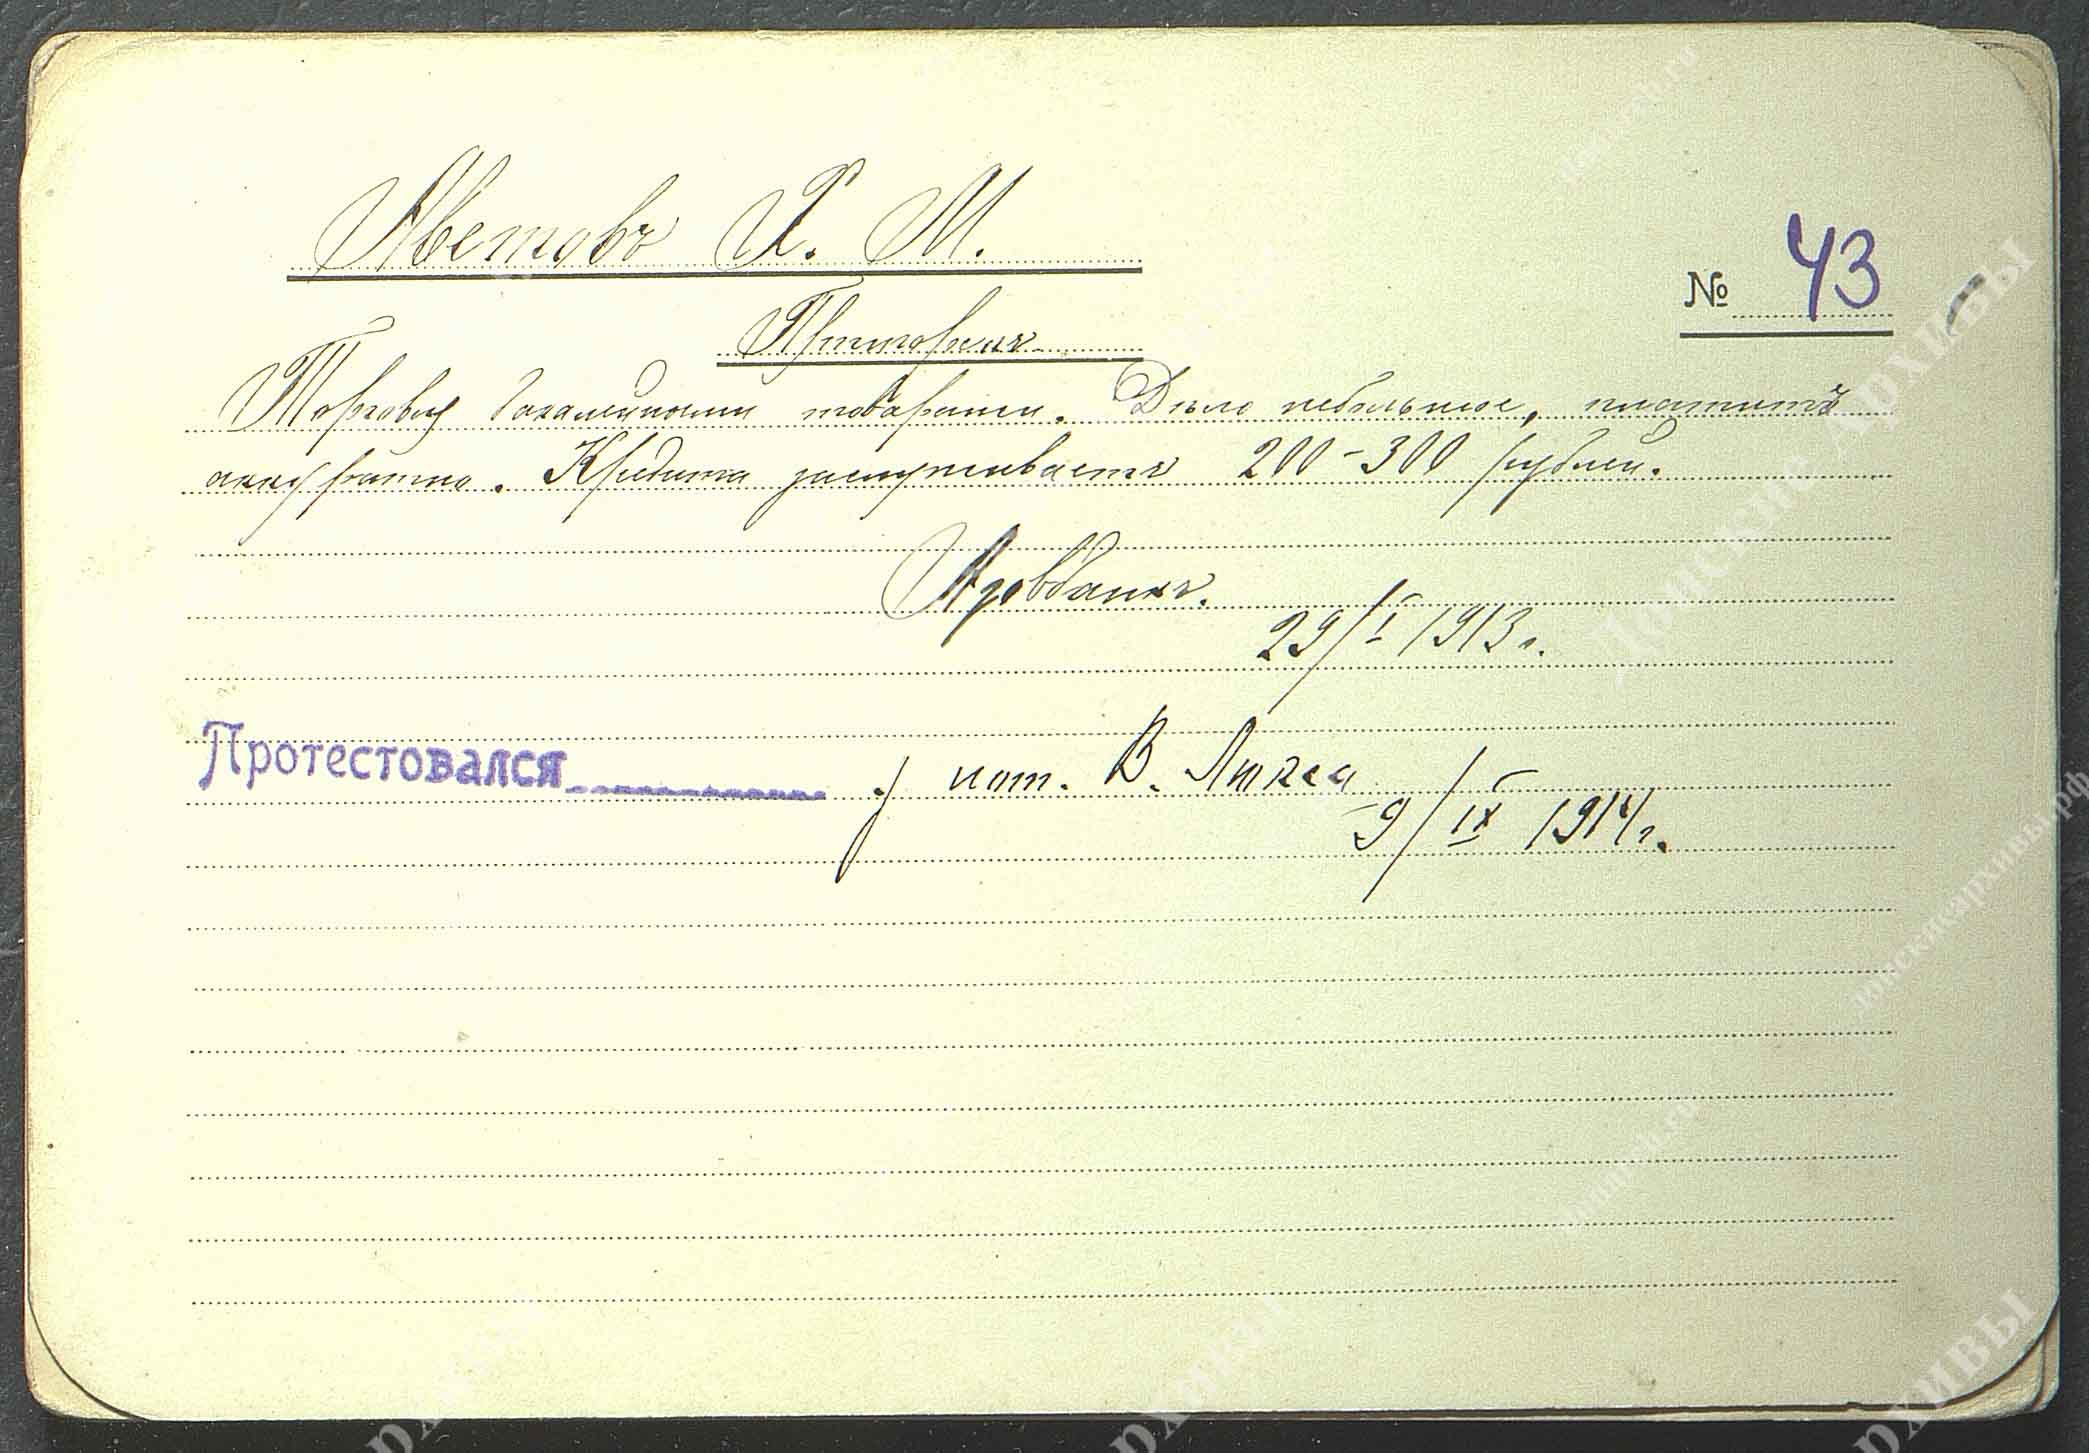 Аветовъ Х. М.
№ 43
Пятигорскъ
Торговля бакалейными товарами. Дѣло небольшое, платитъ
аккуратно. Кредита заслуживаетъ 200-300 рублей.
Азовбанкъ.
29/I 1913 г.
Протестовался у нот. В. Люкса
9/IX 1914 г.
донскиеархивы.рф
Донские Архивы